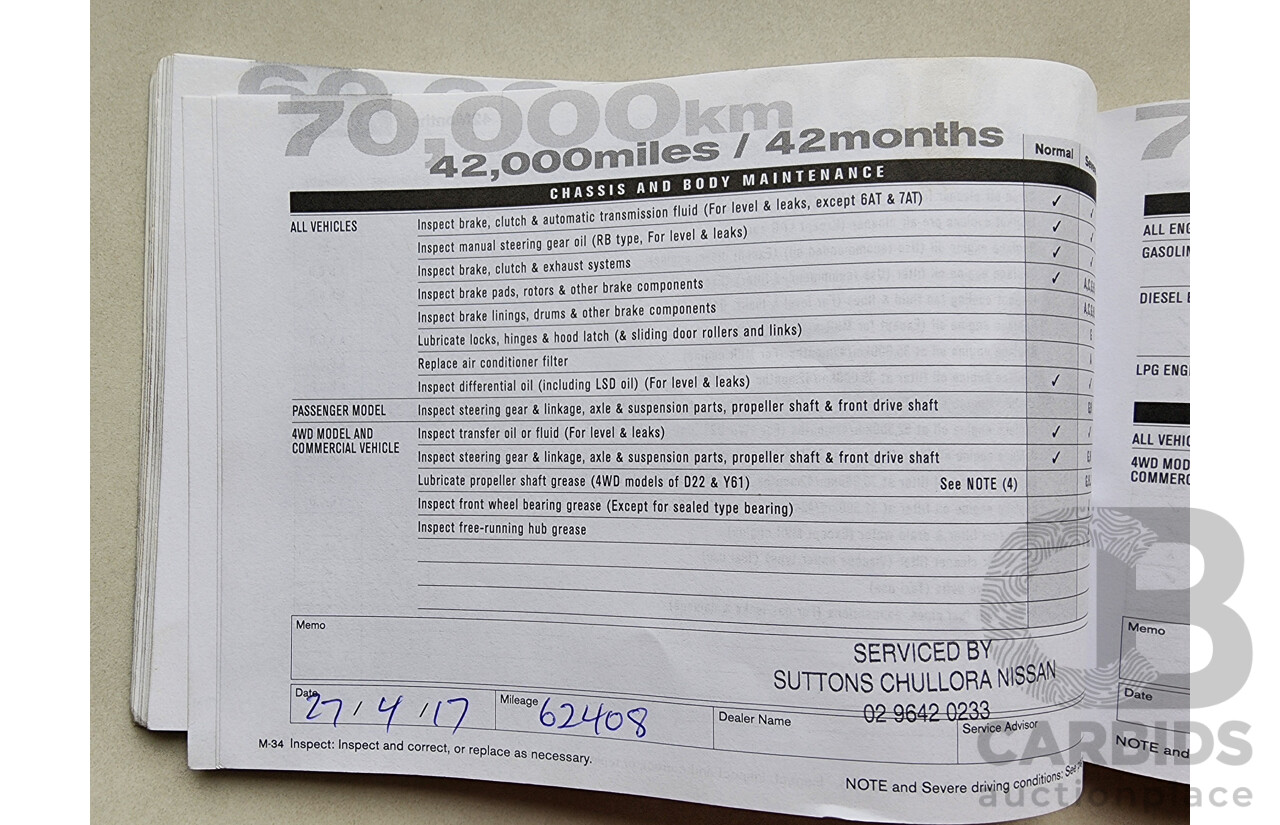 70,000km
42,000miles / 42months
Normal
CHASSIS AND BODY MAINTENANCE
ALL VEHICLES
Inspect brake, clutch & automatic transmission fluid (For level & leaks, except 6AT & 7AT) ✓
Inspect manual steering gear oil (RB type, For level & leaks) ✓
Inspect brake, clutch & exhaust systems ✓
Inspect brake pads, rotors & other brake components ✓
Inspect brake linings, drums & other brake components
Lubricate locks, hinges & hood latch (& sliding door rollers and links)
Replace air conditioner filter
Inspect differential oil (including LSD oil) (For level & leaks) ✓
PASSENGER MODEL Inspect steering gear & linkage, axle & suspension parts, propeller shaft & front drive shaft
4WD MODEL AND
COMMERCIAL VEHICLE
Inspect transfer oil or fluid (For level & leaks) ✓
Inspect steering gear & linkage, axle & suspension parts, propeller shaft & front drive shaft ✓
Lubricate propeller shaft grease (4WD models of D22 & Y61) See NOTE (4)
Inspect front wheel bearing grease (Except for sealed type bearing)
Inspect free-running hub grease
Memo
SERVICED BY
SUTTONS CHULLORA NISSAN
02 9642 0233
Date 27/4/17
Mileage 62408
Dealer Name
Service Advisor
M-34 Inspect: Inspect and correct, or replace as necessary.
NOTE and Severe driving conditions: See
7
ALL ENG
GASOLIN
DIESEL E
LPG ENGI
ALL VEHIC
4WD MOD
COMMERC
Memo
Date
NOTE and
CB
CARBIDS
auctionplace